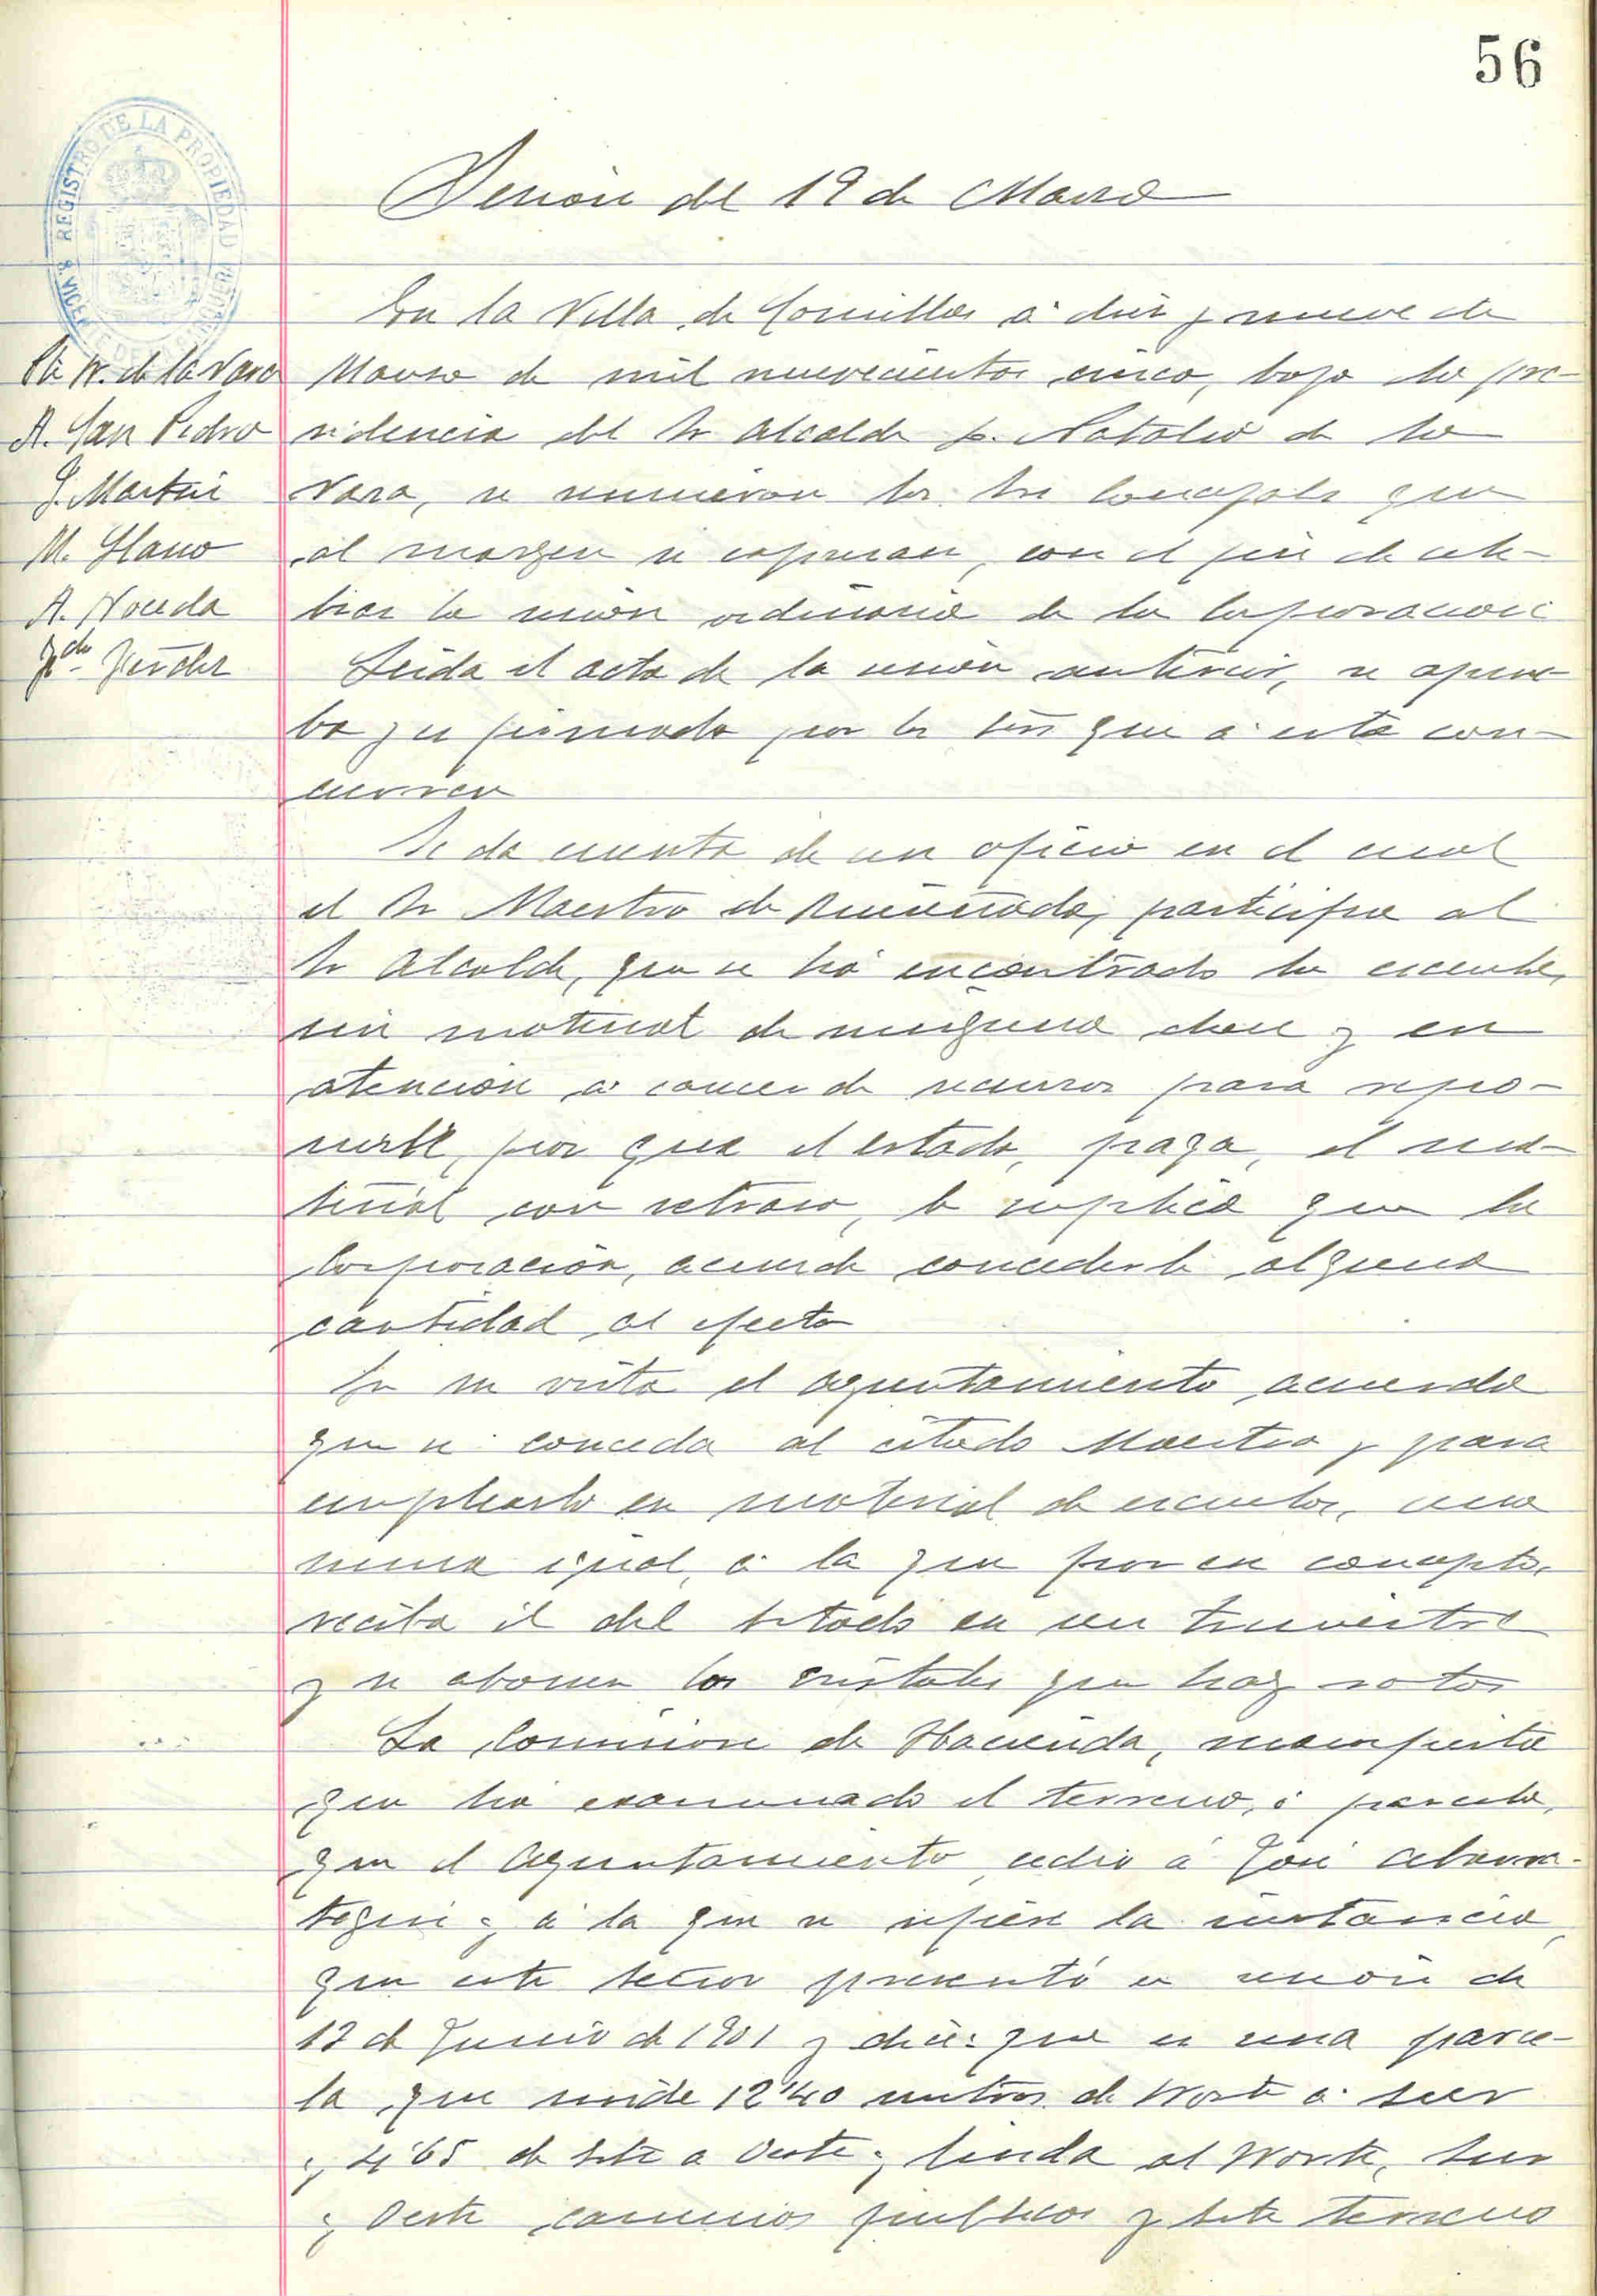 56
REGISTRO DE LA PROPIEDAD
Sesion del 19 de Marzo
En la Villa de Comillas á diez y nueve de
Marzo de mil novecientos cinco, bajo la pre-
sidencia del Sr Alcalde D. Natalio de la
Vara, se reunieron los Sres Concejales que
al margen se expresan, con el fin de cele-
brar la sesión ordinaria de la Corporación
Pte N. de la Vara
A. San Pedro
J. Martin
M. Llano
A. Noceda
Fdo Sanchez
Leida el acta de la sesión anterior, se aprue-
ba y es firmada por los Sres que á esta con-
curren
Se da cuenta de un oficio en el cual
el Sr Maestro de Ruiseñada, participa al
Sr Alcalde, que se há encontrado la escuela,
sin material de ninguna clase y en
atencion á carecer de recursos para repo-
nerle, por que el estado, paga, el ma-
terial con retraso, le suplica que la
Corporación, acuerde concederle alguna
cantidad al efecto
En su vista el ayuntamiento acuerda
que se conceda al citado Maestro y para
emplearlo en material de escuela, una
suma igual, á la que por ese concepto,
reciba él del Estado en un trimestre
y se abonen los cristales que hay rotos
La Comision de Hacienda, manifiesta
que há examinado el terreno, ó parcela,
que el Ayuntamiento cedio á José
á la que se refiere la instancia,
que este señor presentó en sesión de
de Junio de 1901 y dice: que es una parce-
la que mide 12'40 metros de Norte á Sur
y 4'65 de Este a Oeste; linda al Norte, Sur
y Oeste caminos publicos y Este terreno